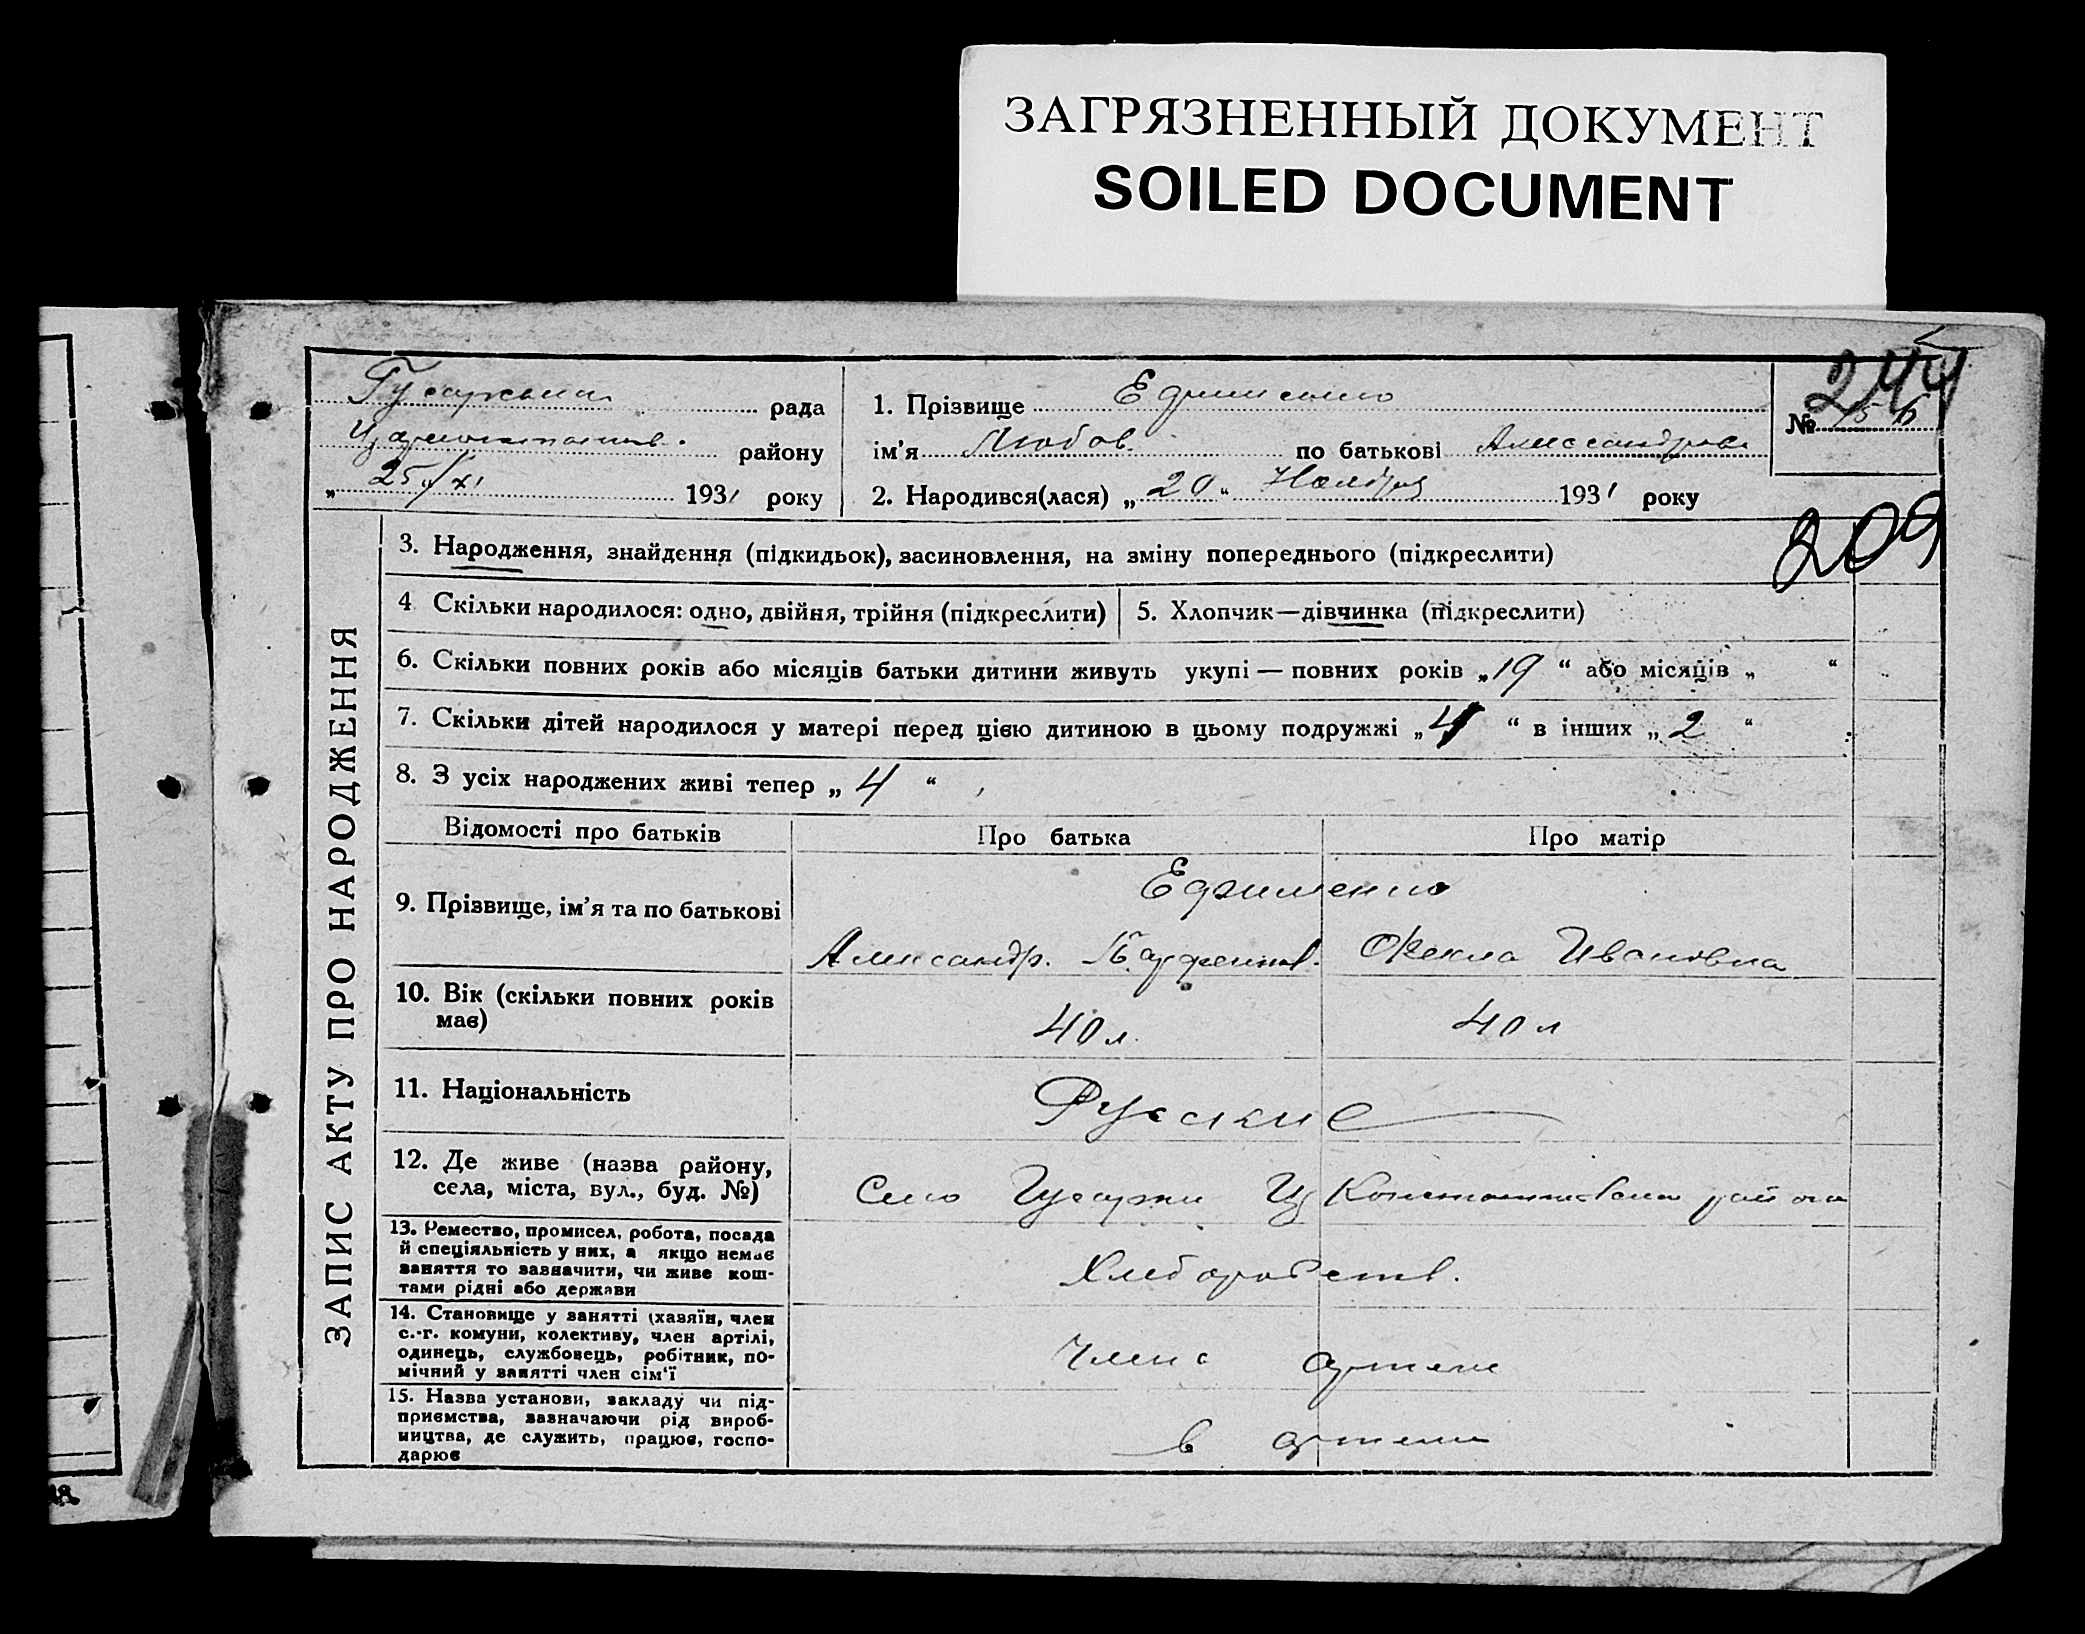 ЗАГРЯЗНЕННЫЙ ДОКУМЕНТ
SOILED DOCUMENT
ЗАПИС АКТУ ПРО НАРОДЖЕННЯ
Гусарська рада
району
"25/XI 1931 року
1. Прізвище Ефименко
ім'я Любов. по батькові Александровн
2. Народився(лася) „20" Ноября 1931 року
№ 156
244
209
3. Народження, знайдення (підкидьок), засиновлення, на зміну попереднього (підкреслити)
4 Скільки народилося: одно, двійня, трійня (підкреслити)
5. Хлопчик—дівчинка (підкреслити)
6. Скільки повних років або місяців батьки дитини живуть укупі — повних років „19" або місяців „ "
7. Скільки дітей народилося у матері перед цією дитиною в цьому подружжі „4" в інших „2"
8. З усіх народжених живі тепер „4"
Відомості про батьків Про батька Про матір
9. Прізвище, ім'я та по батькові
Ефименко
Александр. Парфенов. Фекла Ивановна
10. Вік (скільки повних років має)
40 л. 40 л
11. Національність
Русские
12. Де живе (назва району,
села, міста, вул., буд. №)
Село Гусарки Ц Константиновского района
13. Ремество, промисел, робота, посада
й спеціяльність у них, а якщо немає
заняття то зазначити, чи живе кош-
тами рідні або держави
Хлебороб
14. Становище у занятті (хазяїн, член
с.-г. комуни, колективу, член артілі,
одинець, службовець, робітник, по-
мічний у занятті член сім'ї
Член артели
15. Назва установи, закладу чи під-
приємства, зазначаючи рід вироб-
ництва, де служить, працює, госпо-
дарює
в артели